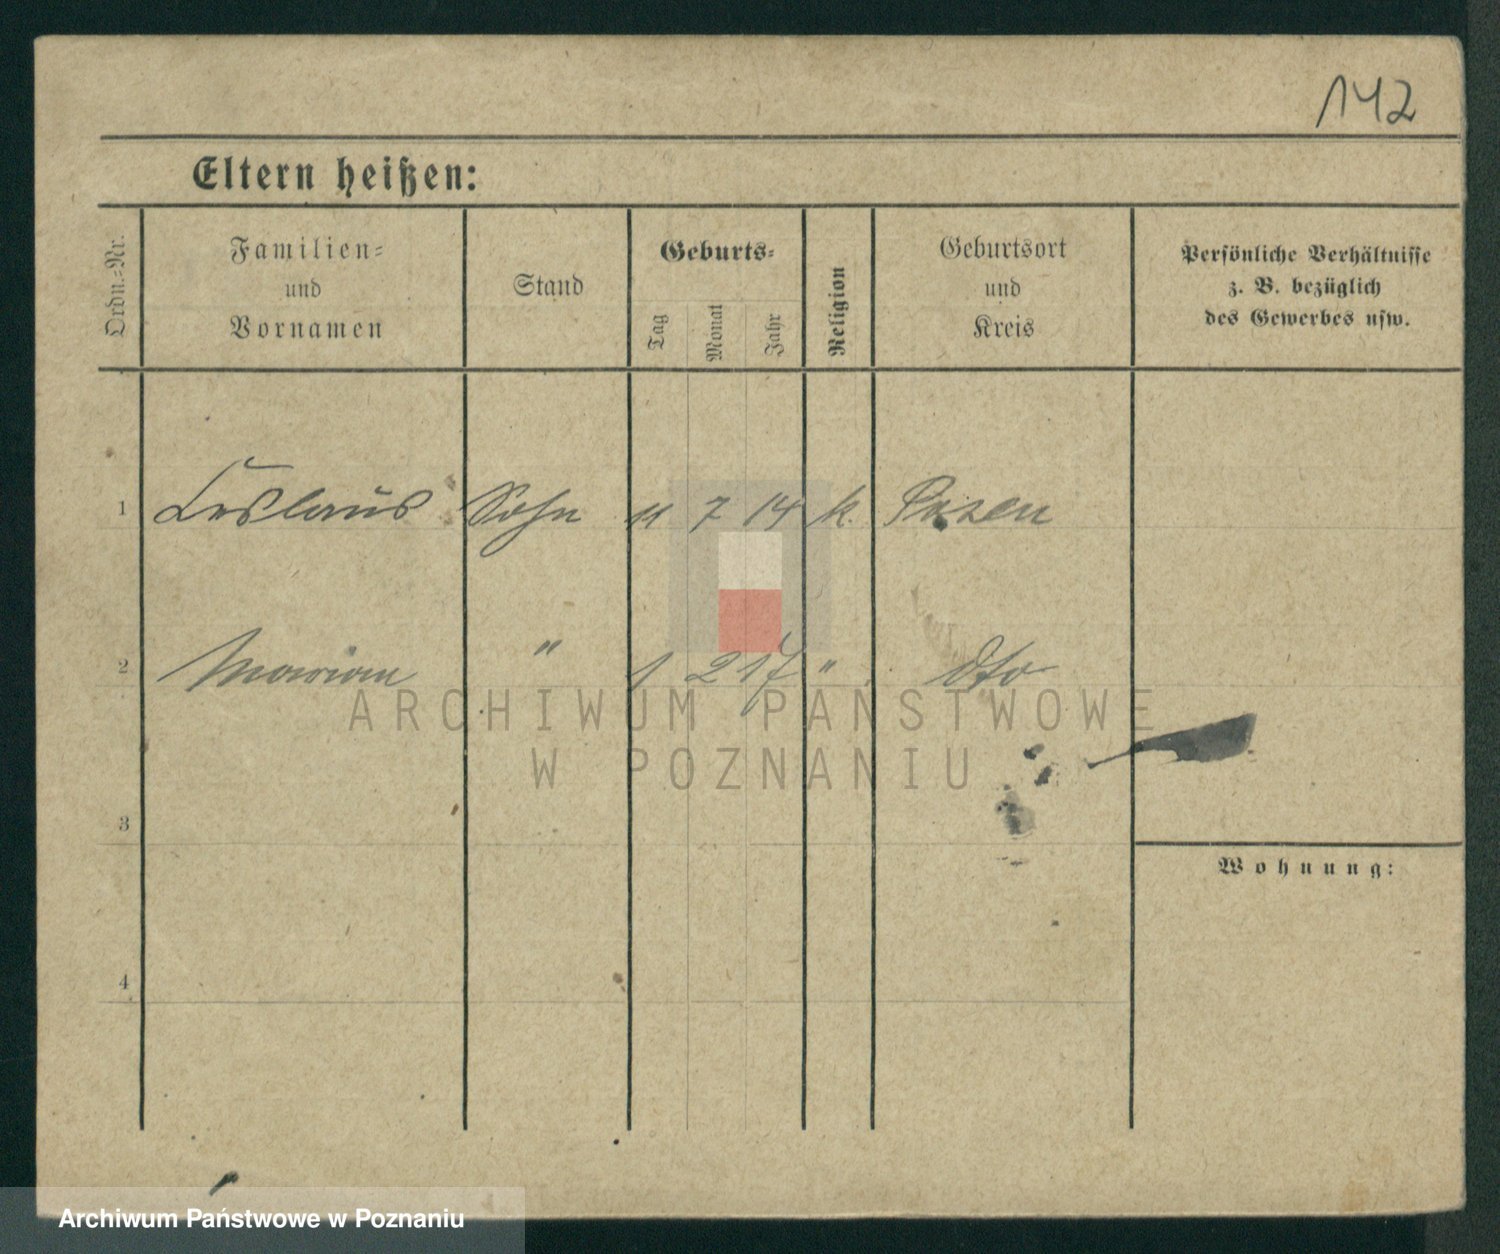 142
Eltern heißen:
Ordn.=Nr.
Familien=
und
Vornamen
Stand
Geburts=
Tag
Monat
Jahr
Religion
Geburtsort
und
Kreis
Persönliche Verhältnisse
z. B. bezüglich
des Gewerbes usw.
1 Ceslaus Sohn 11 7 14 k. Posen
2 Marian " 1 2 17 " dto
ARCHIWUM PAŃSTWOWE
W POZNANIU
3
Wohnung:
4
Archiwum Państwowe w Poznaniu